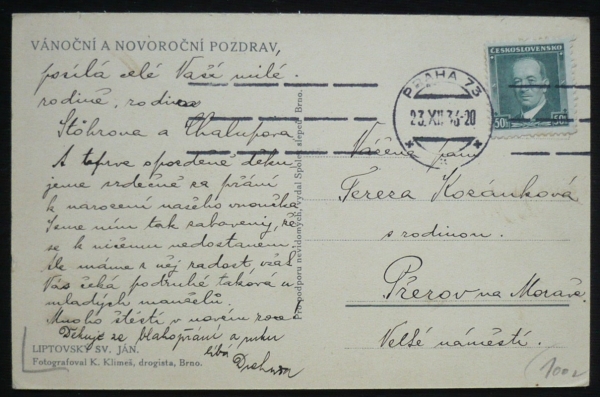 VÁNOČNÍ A NOVOROČNÍ POZDRAV,
posílá celé Vaší milé
rodině, rodina
Stöhrova a Chalupova
A teprve opožděně děku-
jeme srdečně za přání
k narození našeho vnoučka
Jsme ním tak zabaveny, že
se k ničemu nedostanem.
Ale máme z něj radost, však
Vás čeká podruhé taková u
mladých manželů.
Mnoho štěstí v novém roce
Děkuje za blahopřání a ruku
líbá
LIPTOVSKÝ SV. JÁN.
Fotografoval K. Klimeš, drogista, Brno.
Pro podporu nevidomých, vydal Spolek slepců, Brno.
PRAHA 73
23.XII.36-20
ČESKOSLOVENSKO
50h 50h
Vážená paní
Tereza Kozánková
s rodinou.
Přerov na Moravě
Velké náměstí.
100